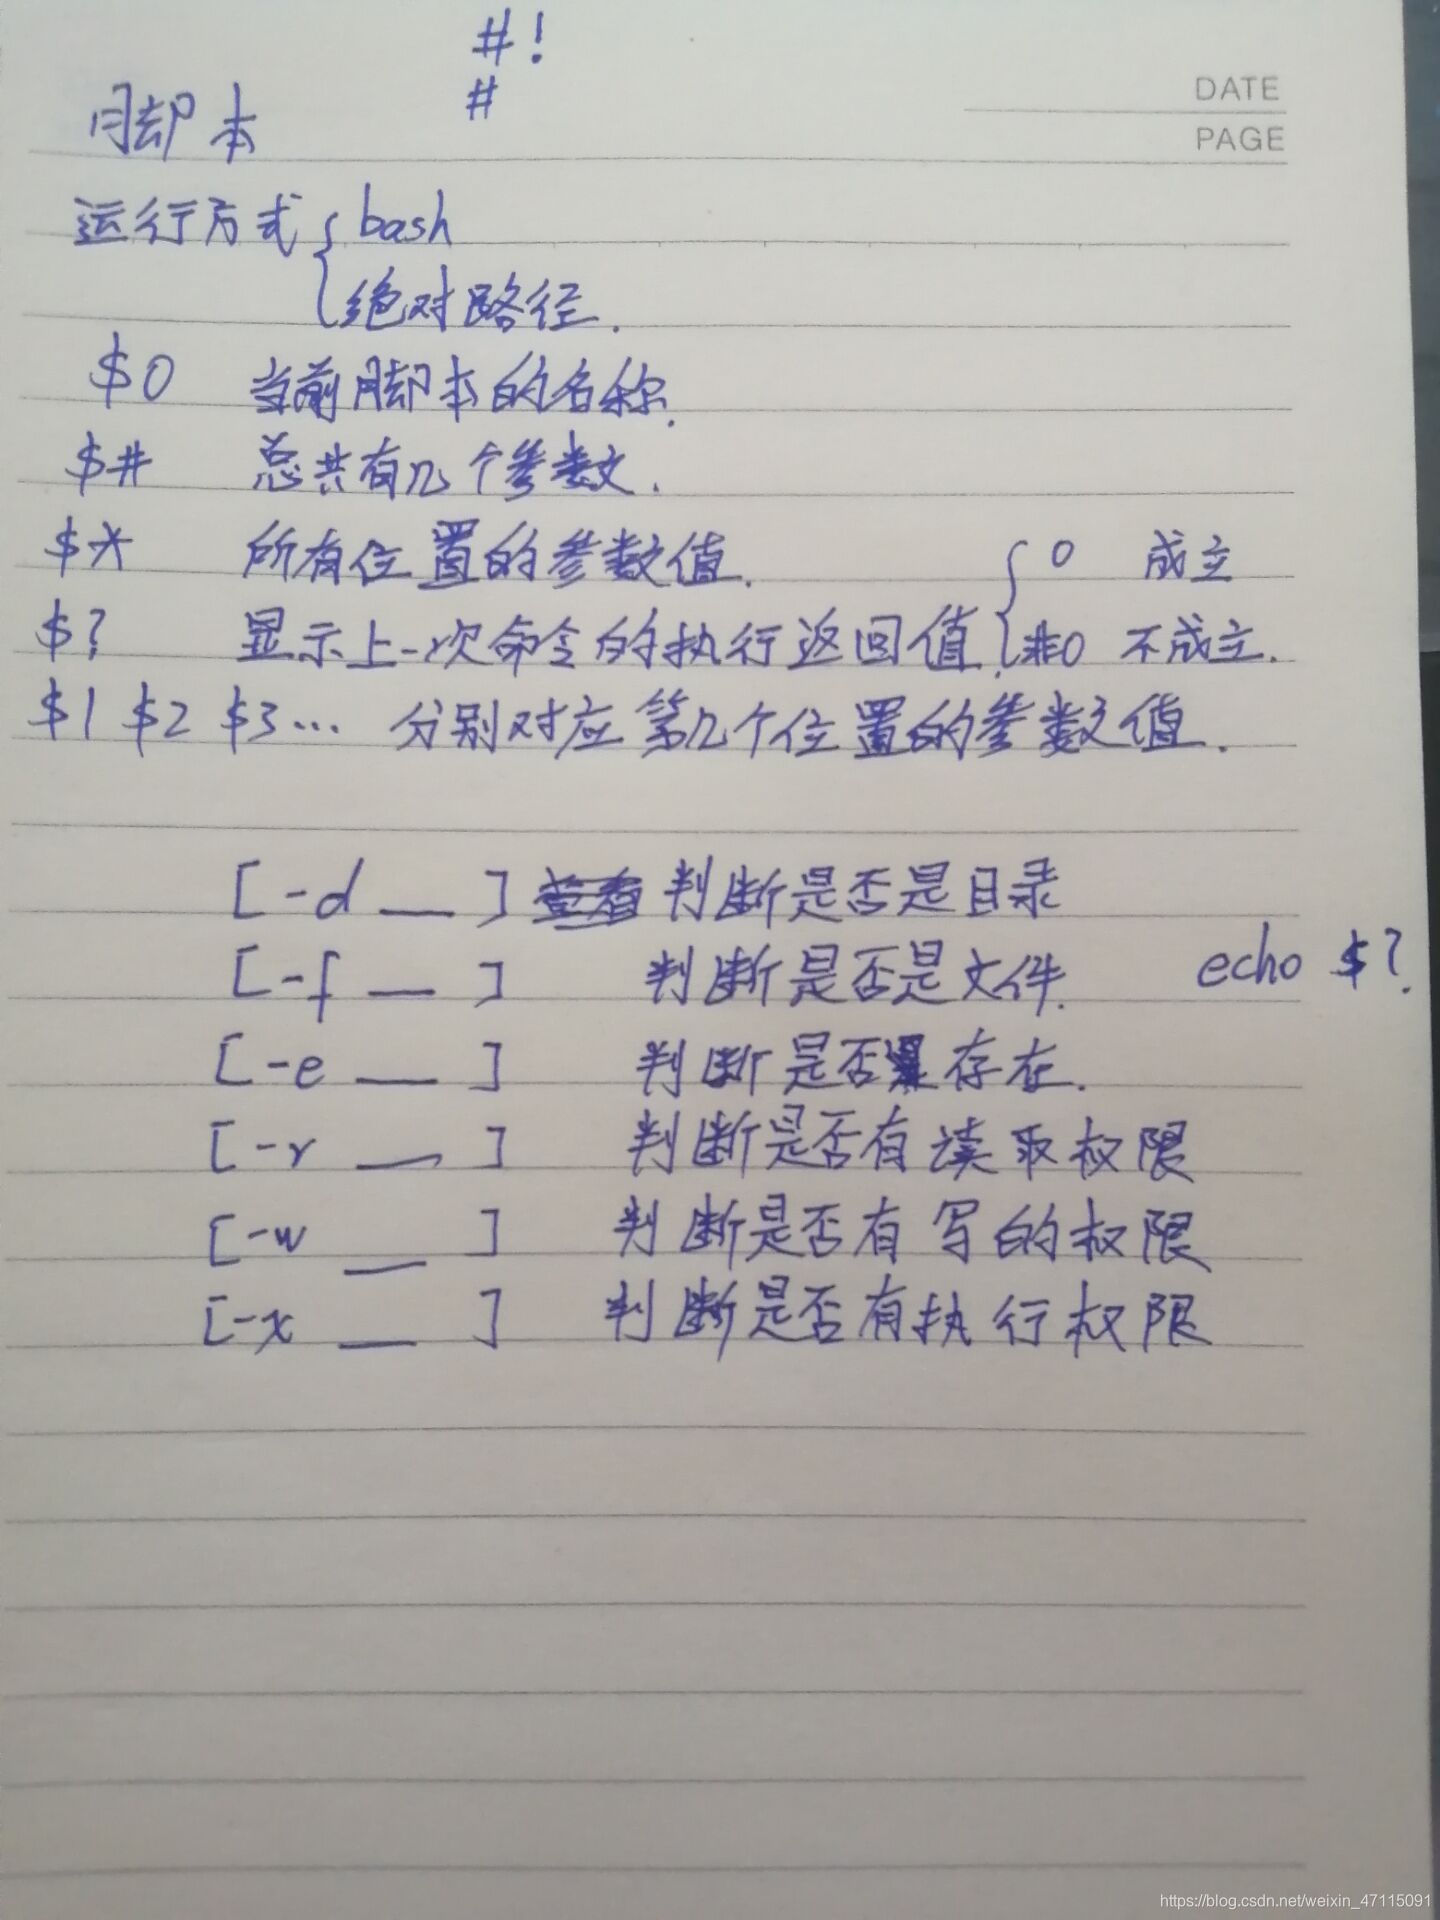 #!
#
DATE
脚本
PAGE
运行方式 { bash
绝对路径.
$0 当前脚本的名称.
$# 总共有几个参数.
$* 所有位置的参数值. { 0 成立
$? 显示上一次命令的执行返回值. 非0 不成立.
$1 $2 $3... 分别对应第几个位置的参数值.
[ -d __ ] 判断是否是目录
[ -f __ ] 判断是否是文件. echo $?.
[ -e __ ] 判断是否存在.
[ -r __ ] 判断是否有读取权限
[ -w __ ] 判断是否有写的权限
[ -x __ ] 判断是否有执行权限
https://blog.csdn.net/weixin_47115091